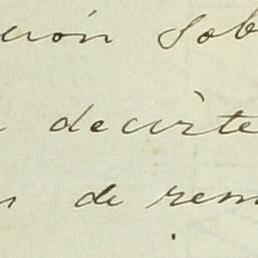 ción sob
decirte
de rem